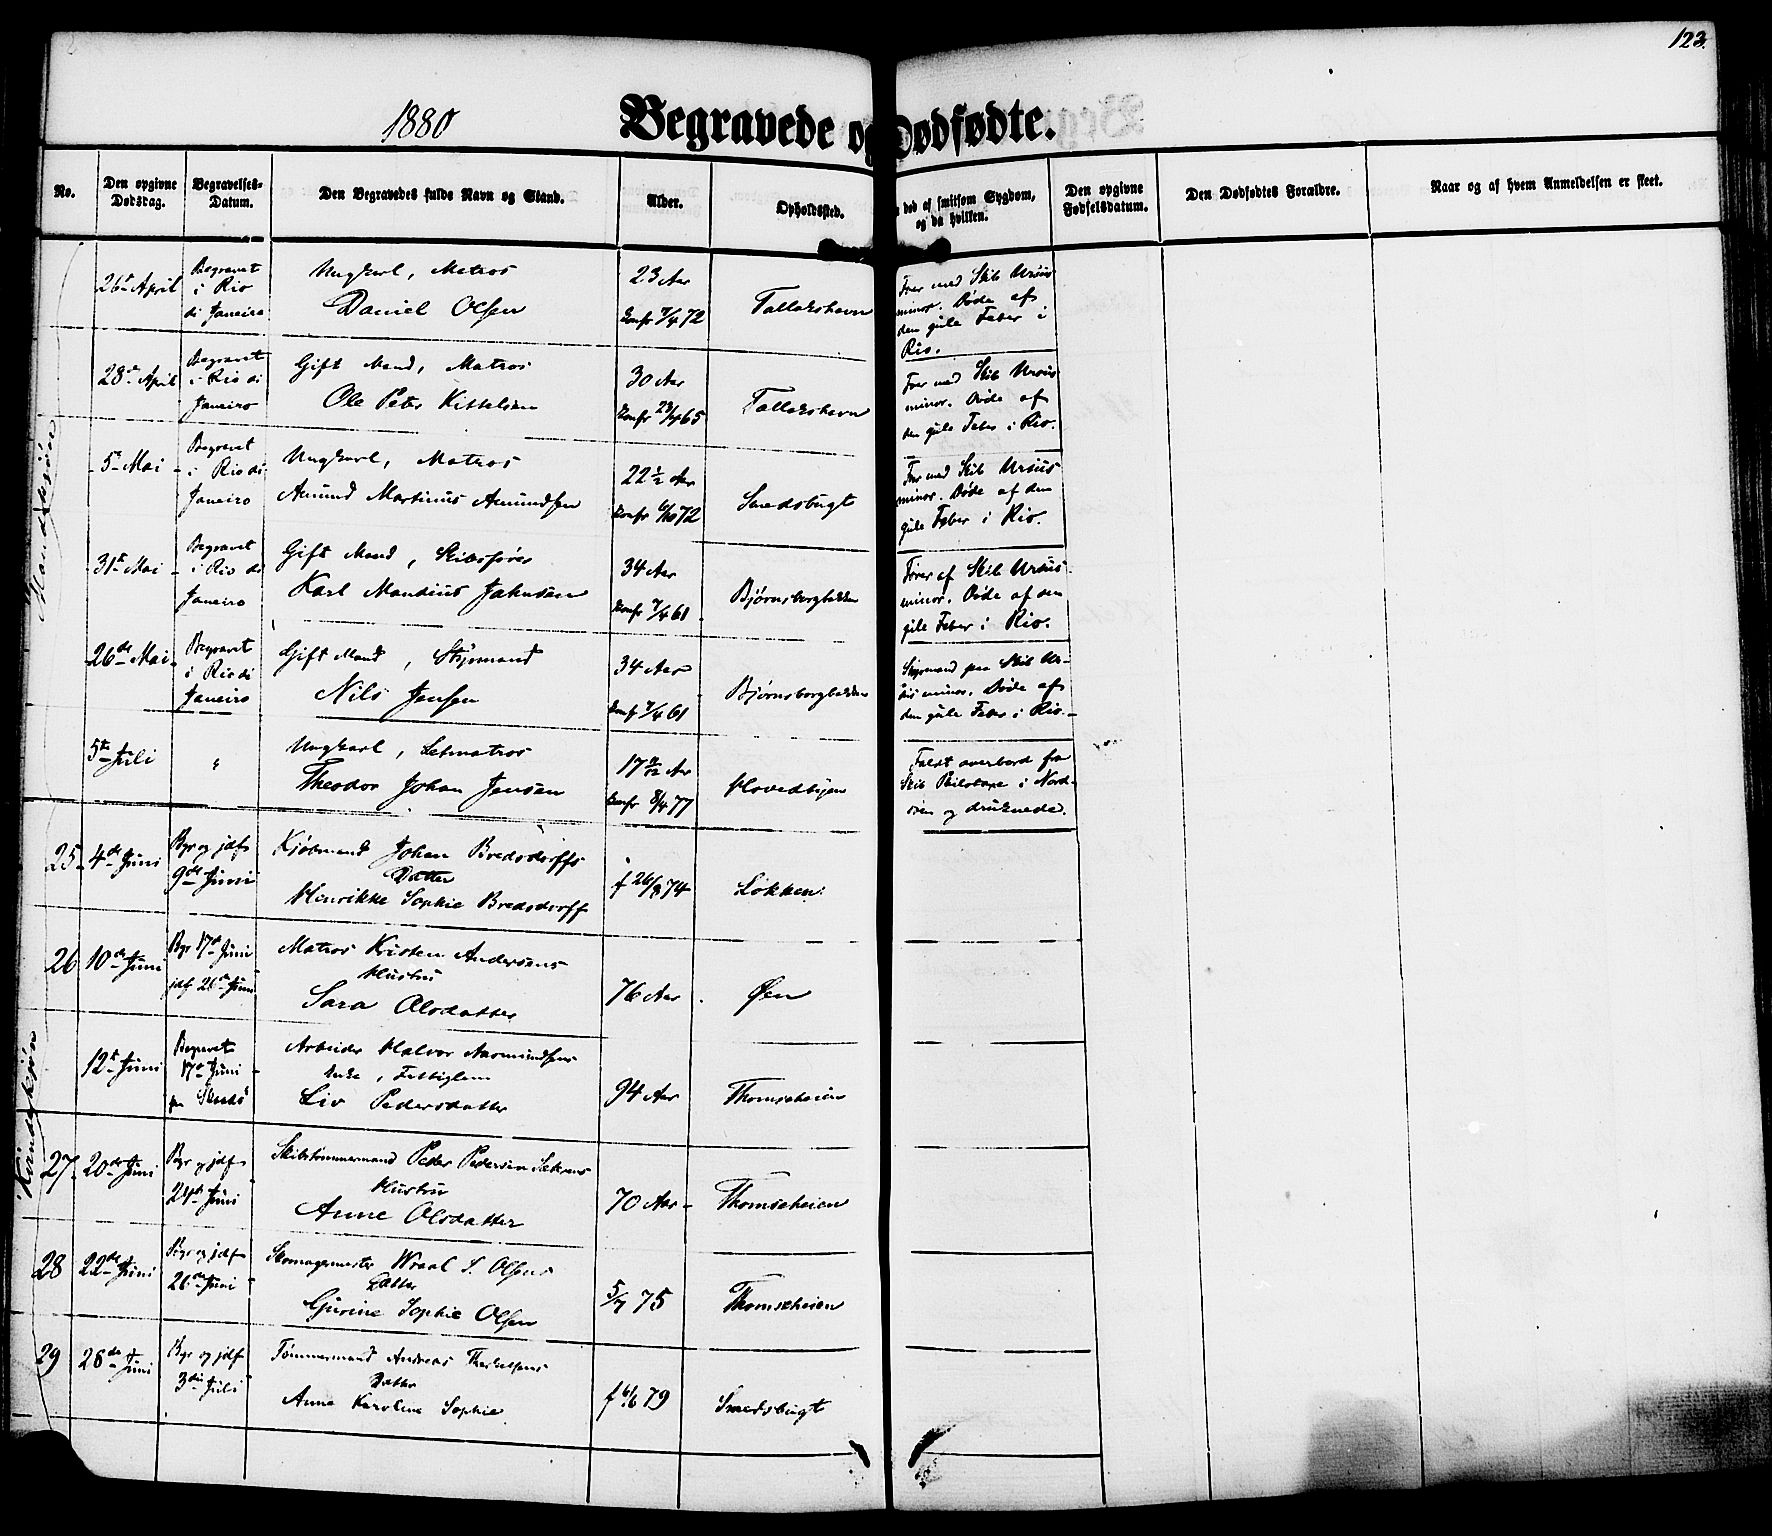 123.
1880
Begravede og Dødfødte.
No.
Den opgivne Dødsdag.
Begravelses-Datum.
Den Begravedes fulde Navn og Stand.
Alder.
Opholdssted.
død af smitsom Sygdom, og da hvilken.
Den opgivne Fødselsdatum.
Den Dødfødtes Forældre.
Naar og af hvem Anmeldelsen er skeet.
Mandekjøn
26de April
Begravet i Rio di Janeiro
Ungkarl, Matros
Daniel Olsen
23 Aar
Konfr 7/4 72
Tallakshavn
Foer med Skib Ursus minor. Døde af den gule Feber i Rio.
28de April
Begravet i Rio di Janeiro
Gift Mand, Matros
Ole Peter Kittelsen
30 Aar
Konfr 23/4 65
Tallakshavn
Foer med Skib Ursus minor. Døde af den gule Feber i Rio.
5te Mai
Begravet i Rio di Janeiro
Ungkarl, Matros
Amund Martinus Amundsen
22 1/2 Aar
Konfr 6/10 72
Smedsbugt
Foer med Skib Ursus minor. Døde af den gule Feber i Rio.
31te Mai
Begravet i Rio di Janeiro
Gift Mand, Skibsfører
Karl Mandius Jahnsen
34 Aar
Konfr 7/4 61
Bjørnsborgbakken
Fører af Skib Ursus minor. Døde af den gule Feber i Rio.
26de Mai
Begravet i Rio di Janeiro
Gift Mand, Styrmand
Nils Jensen
34 Aar
Konf 7/4 61
Bjørnsborgbakken
Styrmand paa Skib Ursus minor. Døde af den gule Feber i Rio.
5te Juli
"
Ungkarl, Letmatros
Theodor Johan Jensen
17 Aar
Konfr 8/4 77
Hovedbyen
Faldt overbord fra Skib i Nordsøen og druknede.
Kvindekjøn
25
4de Juni
Bgr og jdf 9de Juni
Kjøbmand Johan Bredsdorffs Datter
Henrikke Sophie Bredsdorff
f 26/8 74
Løkken
26
10de Juni
Bgr 17de Juni jdf 26de Juni
Matros Kristen Andersens Hustru
Sara Olsdatter
76 Aar
Øen
12te Juni
Begravet 17de Juni
Arbeider Halvor Aasmundsens Enke, Fattiglem
Liv Pedersdatter
94 Aar
Thomseheien
27
20de Juni
Bgr og jdf 24de Juni
Skibstømmermand Peder Pedersen Hustru
Anne Olsdatter
70 Aar
Thomseheien
28
22de Juni
Bgr og jdf 26de Juni
Skomagermester Wraal S. Olsens Datter
Gurine Sophie Olsen
5/7 75
Thomseheien
29
28de Juni
Bgr og jdf 3die Juli
Tømmermand Andreas Therkelsens Datter
Anna Karoline Sophie
f 6/6 79
Smedsbugt